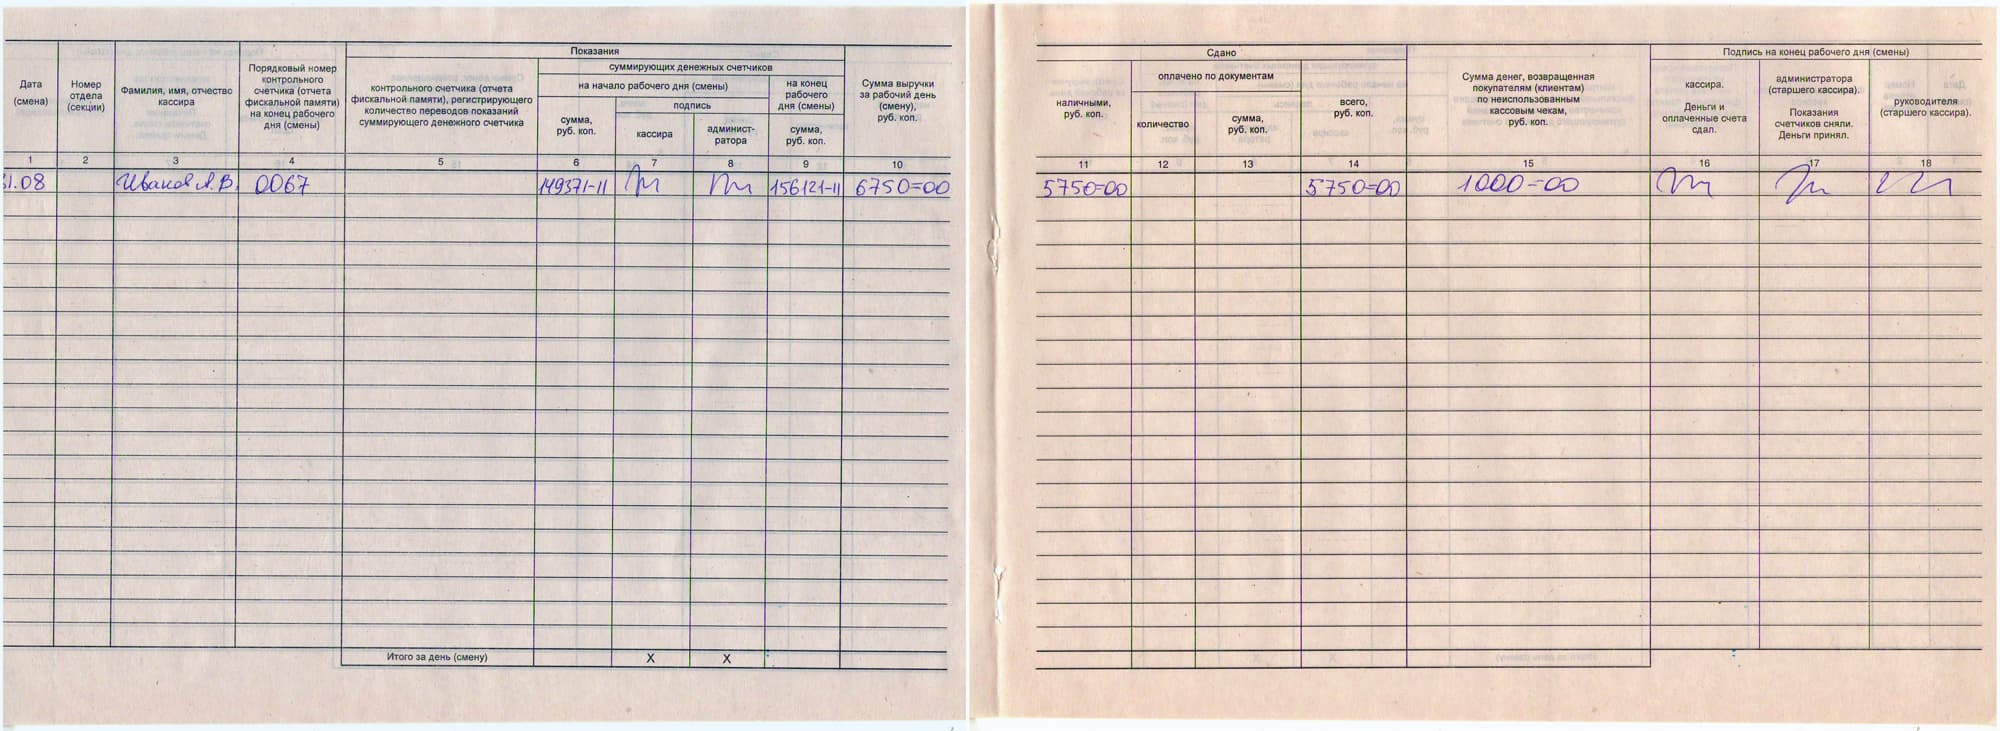 Показания
суммирующих денежных счетчиков
Дата
(смена)
Номер
отдела
(секции)
Фамилия, имя, отчество
кассира
Порядковый номер
контрольного
счетчика (отчета
фискальной памяти)
на конец рабочего
дня (смены)
контрольного счетчика (отчета
фискальной памяти), регистрирующего
количество переводов показаний
суммирующего денежного счетчика
на начало рабочего дня (смены)
сумма,
руб. коп.
подпись
кассира
админист-
ратора
на конец
рабочего
дня (смены)
сумма,
руб. коп.
Сумма выручки
за рабочий день
(смену),
руб. коп.
1 2 3 4 5 6 7 8 9 10
31.08 Иванов А.В. 0067 149371-11 156121-11 6750=00
Итого за день (смену) X X
Сдано
наличными,
руб. коп.
оплачено по документам
количество
сумма,
руб. коп.
всего,
руб. коп.
Сумма денег, возвращенная
покупателям (клиентам)
по неиспользованным
кассовым чекам,
руб. коп.
Подпись на конец рабочего дня (смены)
кассира.
Деньги и
оплаченные счета
сдал.
администратора
(старшего кассира).
Показания
счетчиков сняли.
Деньги принял.
руководителя
(старшего кассира).
11 12 13 14 15 16 17 18
5750=00 5750=00 1000=00